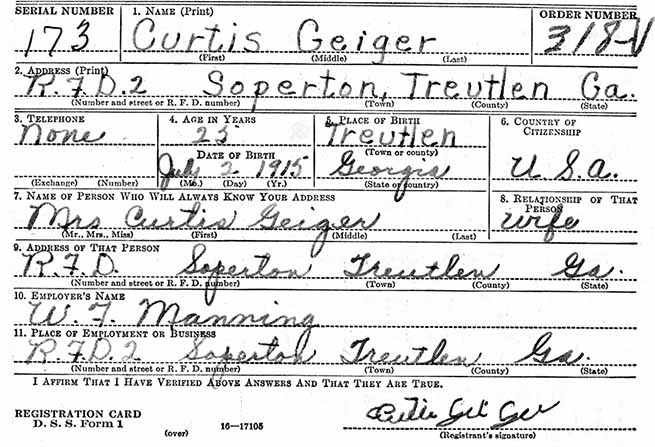 SERIAL NUMBER 1. NAME (Print) ORDER NUMBER
173 Curtis Geiger 318-V
(First) (Middle) (Last)
2. ADDRESS (Print)
R.F.D. 2 Soperton, Treutlen Ga.
(Number and street or R. F. D. number) (Town) (County) (State)
3. TELEPHONE 4. AGE IN YEARS 5. PLACE OF BIRTH 6. COUNTRY OF CITIZENSHIP
None 25 Treutlen
(Town or county)
DATE OF BIRTH
July 2 1915 Georgia U S.A.
(Exchange) (Number) (Mo.) (Day) (Yr.) (State or country)
7. NAME OF PERSON WHO WILL ALWAYS KNOW YOUR ADDRESS 8. RELATIONSHIP OF THAT PERSON
Mrs Curtis Geiger wife
(Mr., Mrs., Miss) (First) (Middle) (Last)
9. ADDRESS OF THAT PERSON
R.F.D. Soperton Treutlen Ga.
(Number and street or R. F. D. number) (Town) (County) (State)
10. EMPLOYER'S NAME
W. F. Manning
11. PLACE OF EMPLOYMENT OR BUSINESS
R.F.D. 2 Soperton Treutlen Ga.
(Number and street or R. F. D. number) (Town) (County) (State)
I AFFIRM THAT I HAVE VERIFIED ABOVE ANSWERS AND THAT THEY ARE TRUE.
REGISTRATION CARD
D. S. S. Form 1 16—17105
(over) (Registrant's signature)